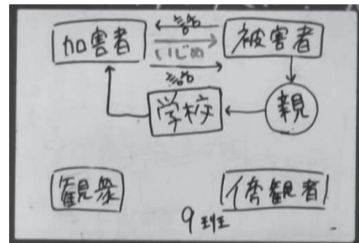 加害者
いじめ
被害者
学校
親
観衆
傍観者
9班